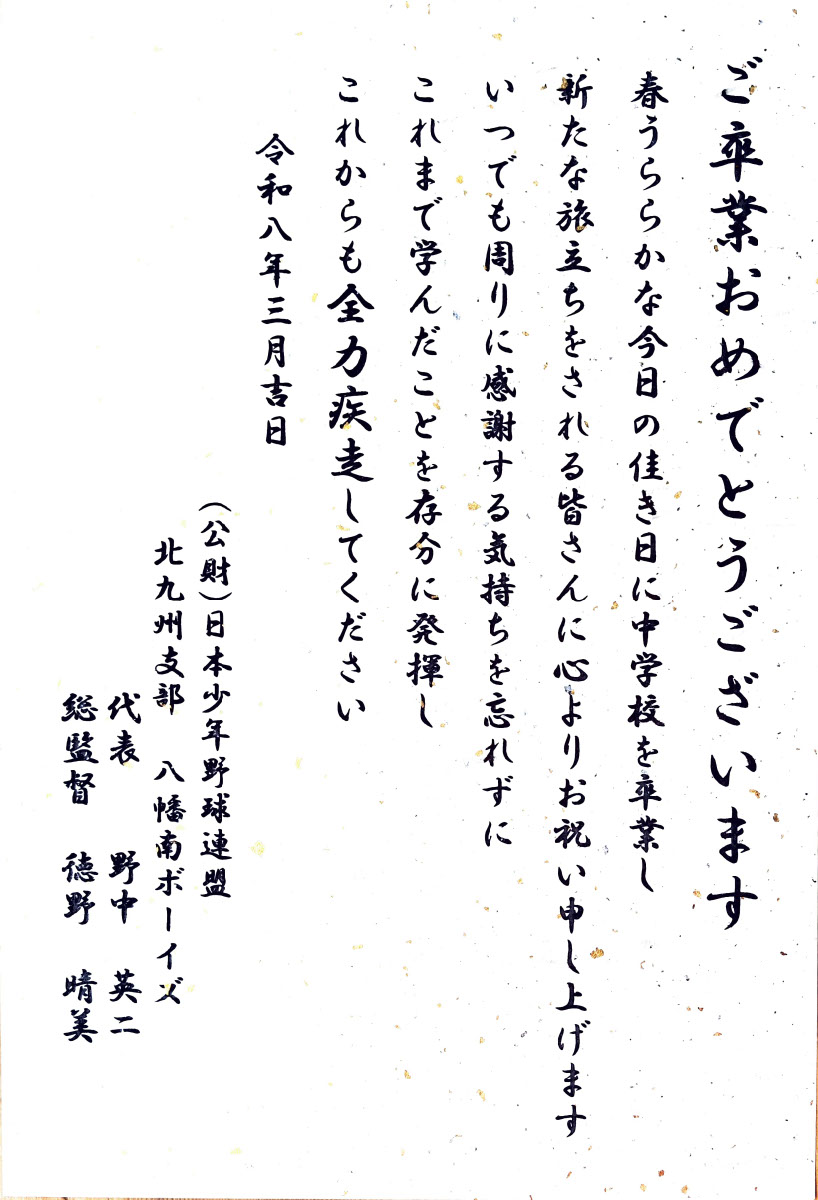 ご卒業おめでとうございます
春うららかな今日の佳き日に中学校を卒業し
新たな旅立ちをされる皆さんに心よりお祝い申し上げます
いつでも周りに感謝する気持ちを忘れずに
これまで学んだことを存分に発揮し
これからも全力疾走してください
令和八年三月吉日
(公財)日本少年野球連盟
北九州支部 八幡南ボーイズ
代表 野中 英二
総監督 徳野 晴美